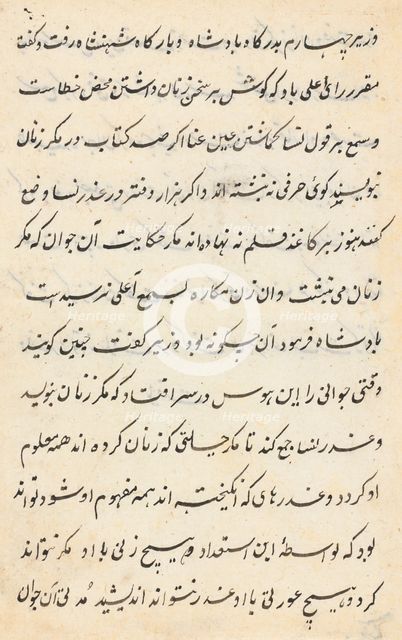 وزیر چهارم بدرکاه بادشاه و بارکاه شهنشاه رفت و کفت
مقرر رای اعلی باد که کوش بر سخن زنان داشتن محض خطاست
و سمع بر قول نسا کماشتن عین عنا اکر صد کتاب در مکر زنان
نبویسند کوئ حرفی نه نبشته اند و اکر هزار دفتر در غدر نسا وضع
کنند هنوز بر کاغذ قلم نه نهاده اند مکر حکایت آن جوان که مکر
زنان می نبشت و ان زن مکاره بسمع اعلی نرسیده است
بادشاه فرمود آن چکونه بود وزیر کفت چنین کویند
وقتی جوانی را این هوس در سر افتاد که مکر زنان بنویسد
و غدر نسا جمع کند تا مکر و حیلتی که زنان کرده اند همه معلوم
او کردد و غدرهای که انکیخته اند همه مفهوم او شود تواند
بود که بواسطهٔ این استعداد هیچ زنی با او مکر نتواند
کرد و هیچ عورتی با او غدر نتواند اندیشید مدتی آن جوان
Heritage
Heritage
Heritage
Heritage